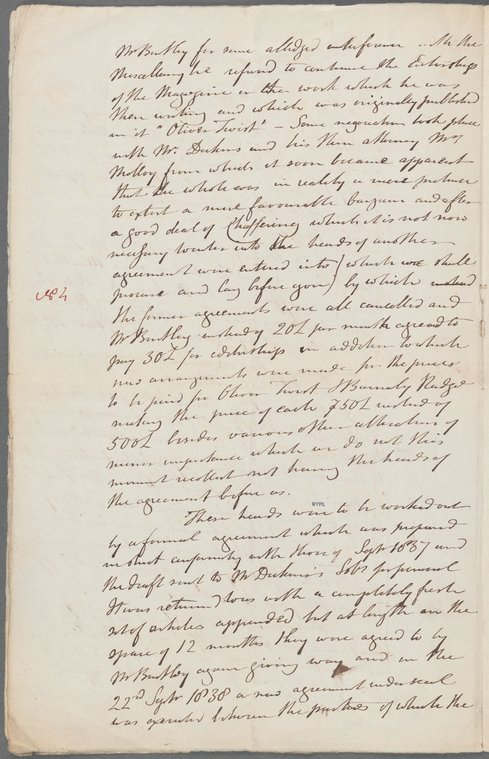 Mr Bentley for some alledged interference with the
Miscellany he refused to continue the Editorship
of the Magazine or the work which he was
then writing and which was originally published
in it "Oliver Twist" – Some negociation took place
with Mr. Dickens and his then attorney Mr
Molloy from which it soon became apparent
that the whole was in reality a mere pretence
to extort a more favourable bargain and after
a good deal of chaffering which it is not now
necessary to enter into the heads of another
agreement were entered into (which we shall
procure and lay before you) by which
the former agreements were all cancelled and
Mr Bentley instead of 20£ per month agreed to
pay 30£ for editorship in addition to which
new arrangements were made for the prices
to be paid for Oliver Twist & Barnaby Rudge
making the price of each 750£ instead of
500£ besides various other alterations of
minor importance which we do not this
moment recollect not having the heads of
the agreement before us.
No 4
NYPL
These heads were to be worked out
by a formal agreement which was prepared
in strict conformity with those of Septr 1837 and
the draft sent to Mr Dickens's Solrs for perusal
It was returned to us with a completely fresh
set of articles appended but at length in the
space of 12 months they were agreed to by
Mr Bentley again giving way and on the
22nd Septr 1838 a new agreement under seal
was executed between the parties of which the